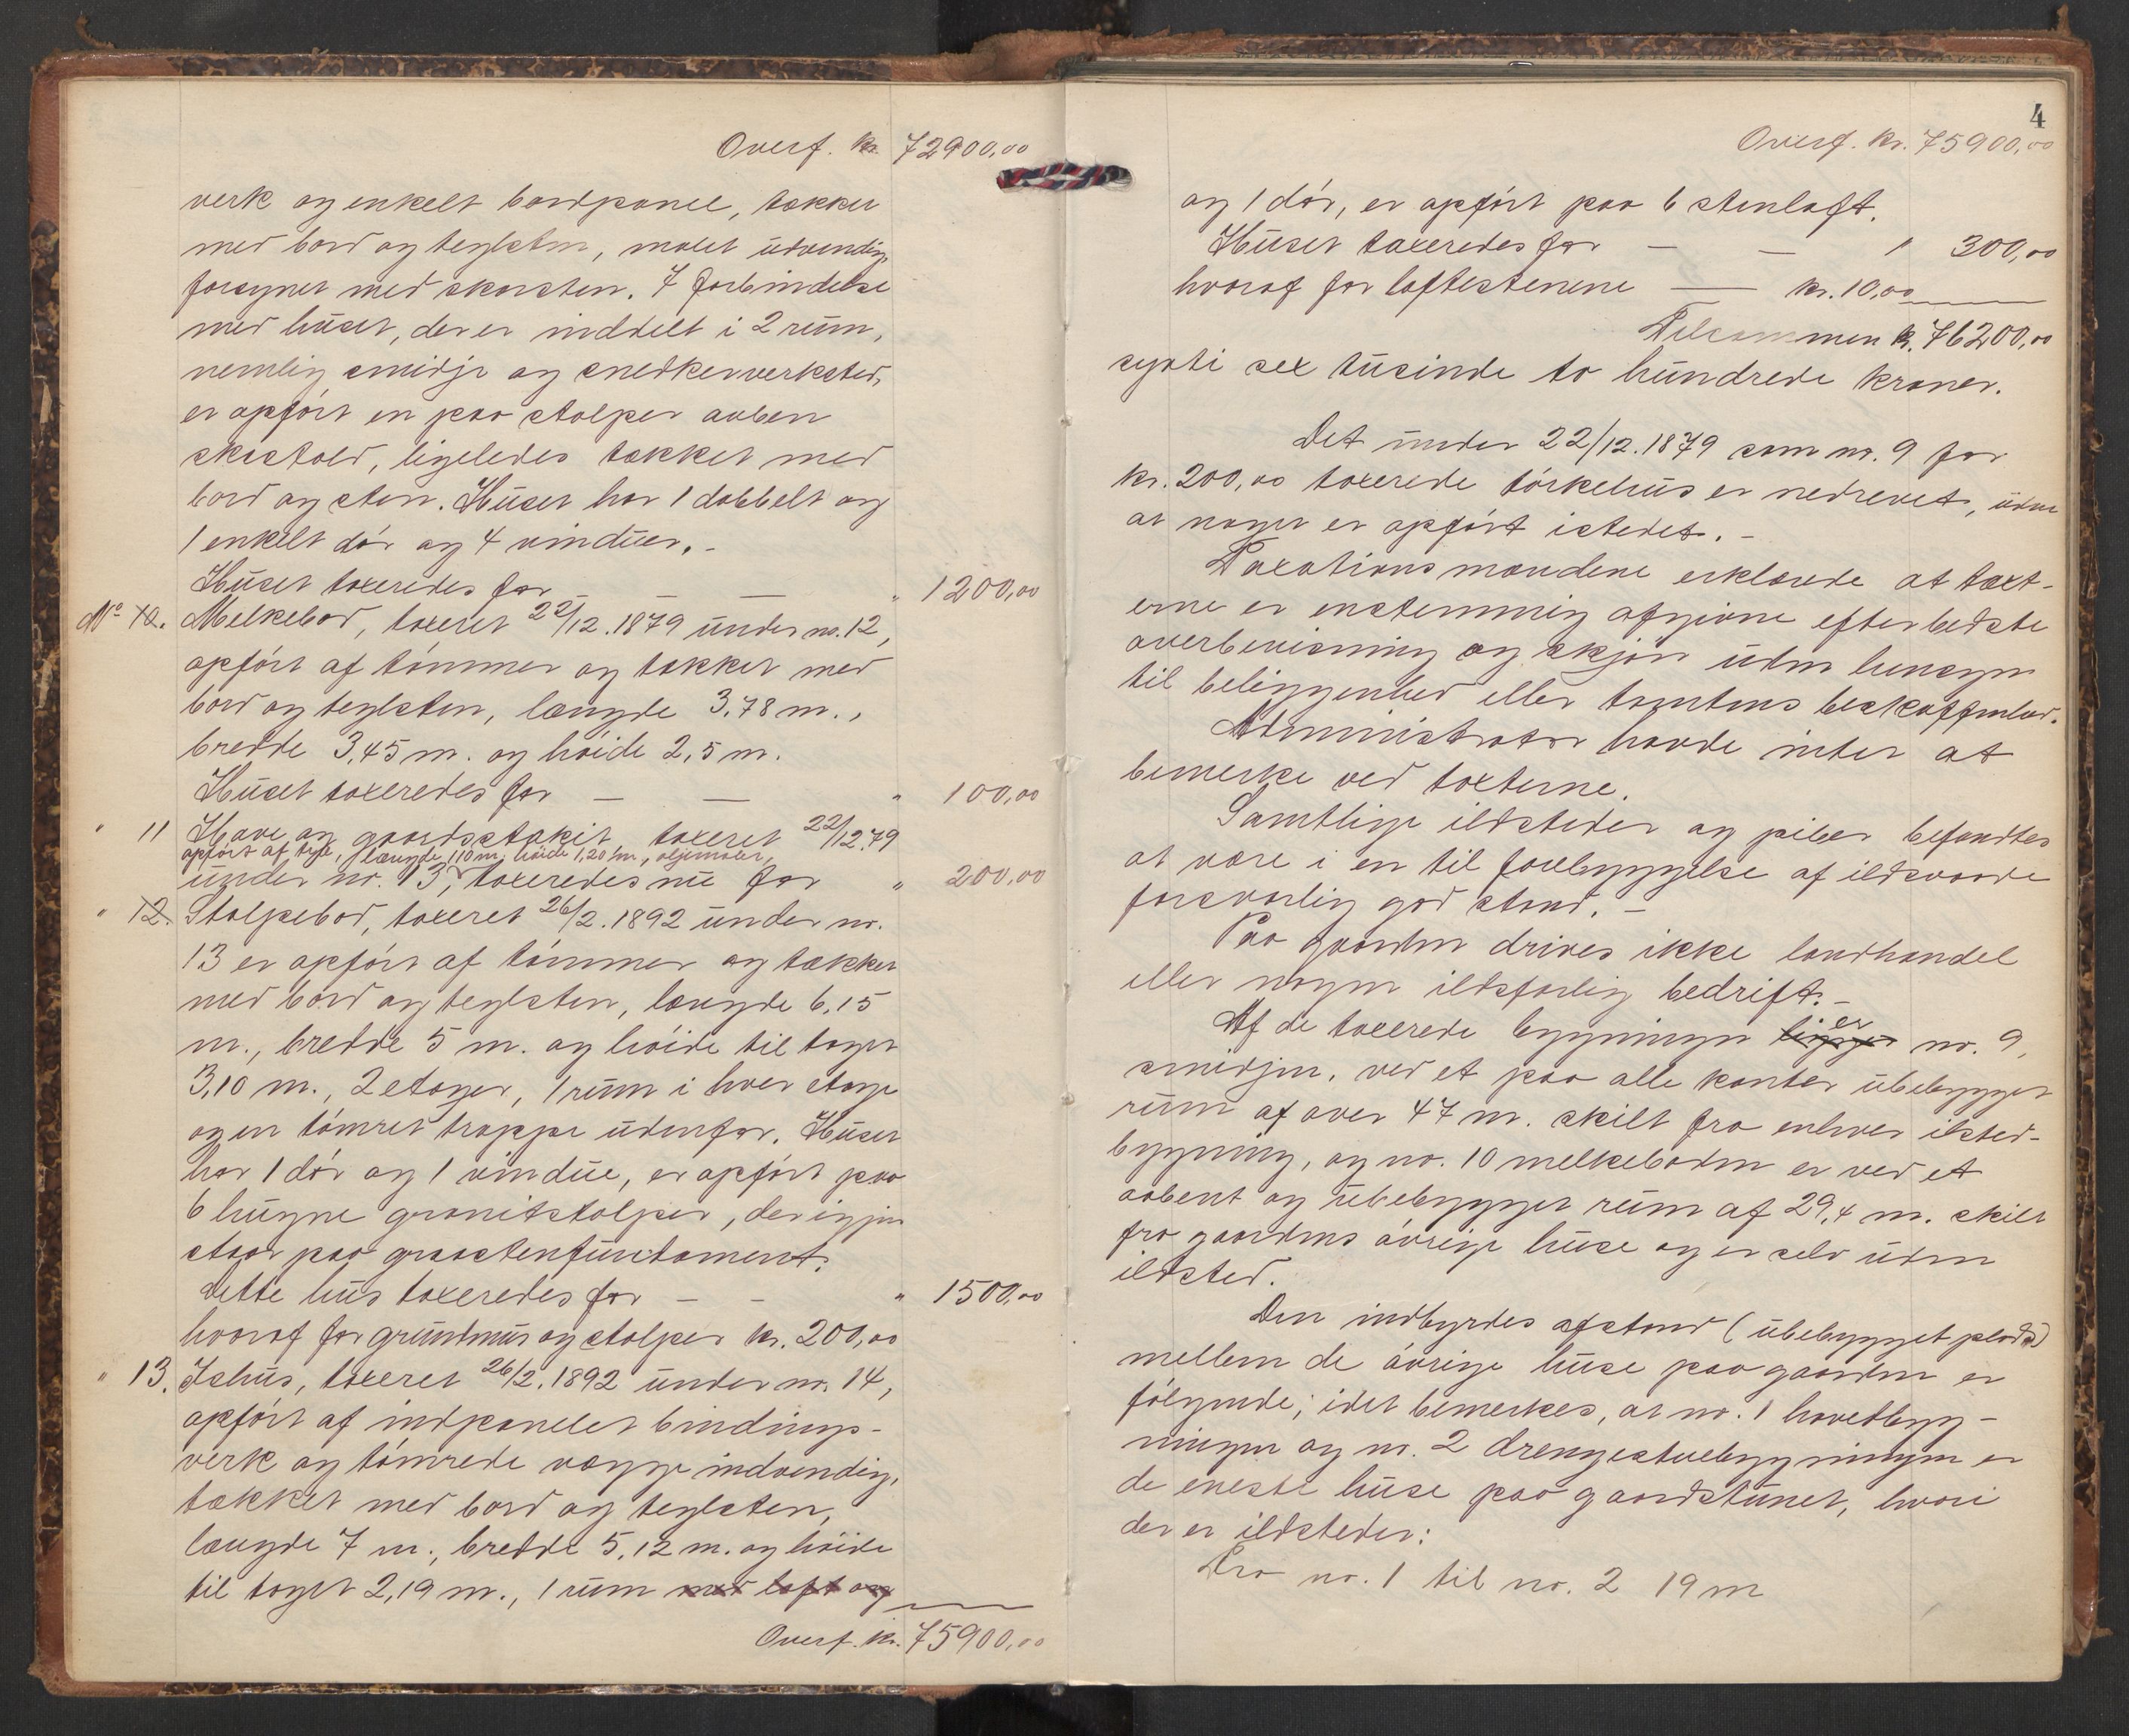 Overf. kr. 72900,00
verk og enkelt bordpanel, tækket
med bord og teglsten, malet udvendig,
forsynet med skorsten. I forbindelse
med huset, der er inddelt i 2 rum,
nemlig smidje og snedkerverksted,
er opført en paa stolper aaben
skostald, ligeledes tækket med
bord og sten. Huset har 1 dobbelt og
1 enkelt dør og 4 vinduer. -
Huset taxeredes for — — " 1200,00
No 10. Melkebod, taxeret 22/12. 1879 under no. 12,
opført af tømmer og tækket med
bord og teglsten, længde 3,78 m.,
bredde 3,45 m. og høide 2,5 m.
Huset taxeredes for — — " 100,00
" 11 Have og gaardsstakit taxeret 22/12.79
opført af træ, længde 110 m, høide 1,20 m., oljemalet,
under no. 13, taxeredes nu for " 200,00
" 12. Stolpebod, taxeret 26/2. 1892 under no.
13 er opført af tømmer og tækket
med bord og teglsten, længde 6,15
m., bredde 5 m. og høide til taget
3,10 m., 2 etager, 1 rum i hver etage
og en tømret trappe udenfor. Huset
har 1 dør og 1 vindue, er opført paa
6 hugne granitstolper, der igjen
staar paa graastenfundament.
Dette hus taxeredes for — — " 1500,00
hvoraf for grundmur og stolper kr. 200,00
" 13. Ishus, taxeret 26/2. 1892 under no. 14,
opført af indpanelet bindings-
verk og tømrede vægge indvendig,
tækket med bord og teglsten,
længde 7 m., bredde 5,12 m. og høide
til taget 2,19 m., 1 rum med loft og
Overf. kr. 75900,00
4
Overf. kr. 75900,00
og 1 dør, er opført paa 6 stenloft.
Huset taxeredes for — — " 300,00
hvoraf for loftestenene — kr. 10,00
Tilsammen kr. 76200,00
sytti sex tusinde to hundrede kroner.
Det under 22/12. 1879 som no. 9 for
kr. 200,00 taxerede tørkehus er nedrevet, uden
at noget er opført istedet. -
Taxationsmændene erklærede at taxt-
erne er enstemmig afgivne efter bedste
overbevisning og skjøn uden hensyn
til beliggenhed eller tomtens beskaffenhed.
Administrator havde intet at
bemerke ved taxterne.
Samtlige ildsteder og piber befandtes
at være i en til forebyggelse af ildsvaade
forsvarlig god stand. -
Paa gaarden drives ikke landhandel
eller nogen ildsfarlig bedrift. -
Af de taxerede bygninger ligger er no. 9,
smidjen, ved et paa alle kanter ubebygget
rum af over 47 m. skilt fra enhver ildsted-
bygning, og no. 10 melkeboden er ved et
aabent og ubebygget rum af 29,4 m. skilt
fra gaardens øvrige huse og er selv uden
ildsted.
Den indbyrdes afstand (ubebygget plads)
mellem de øvrige huse paa gaarden er
følgende; idet bemerkes, at no. 1 hovedbyg-
ningen og no. 2 drengestuebygningen er
de eneste huse paa gaardstunet, hvori
der er ildsteder:
Fra no. 1 til no. 2 19 m